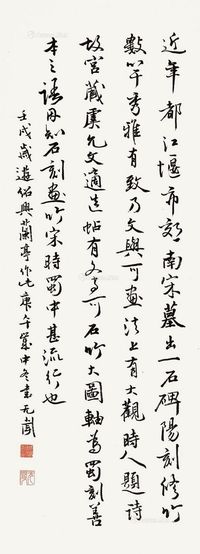 近年都江堰市郊南宋墓出一石碑陽刻修竹
數竿秀雅有致乃文與可畫法上有大觀時人題詩
故宮藏虞允文適造帖有文与可石竹大圖軸為蜀刻善
本之語因知石刻畫竹宋時蜀中甚流行也
壬戌歲遊紹興蘭亭作此庚午歲中冬書元白